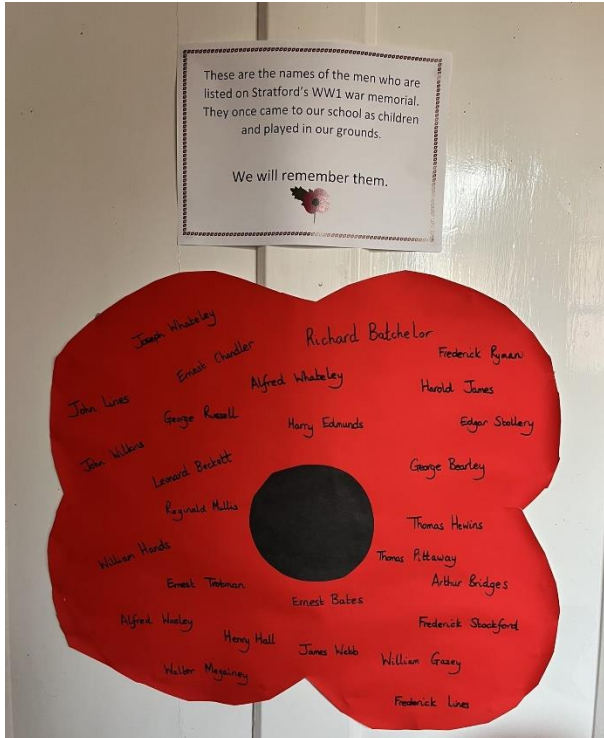 These are the names of the men who are
listed on Stratford's WW1 war memorial.
They once came to our school as children
and played in our grounds.
We will remember them.
Joseph Whateley
Richard Batchelor
Ernest Chandler
Frederick Ryman
Alfred Whateley
Harold James
John Lines
George Russell
Harry Edmunds
Edgar Stollery
John Wilkins
Leonard Beckett
George Bearley
Reginald Mullis
Thomas Hewins
William Hands
Thomas Pittaway
Ernest Trotman
Arthur Bridges
Ernest Bates
Alfred
Frederick Stockford
Henry Hall
James Webb
William Gazey
Walter
Frederick Lines